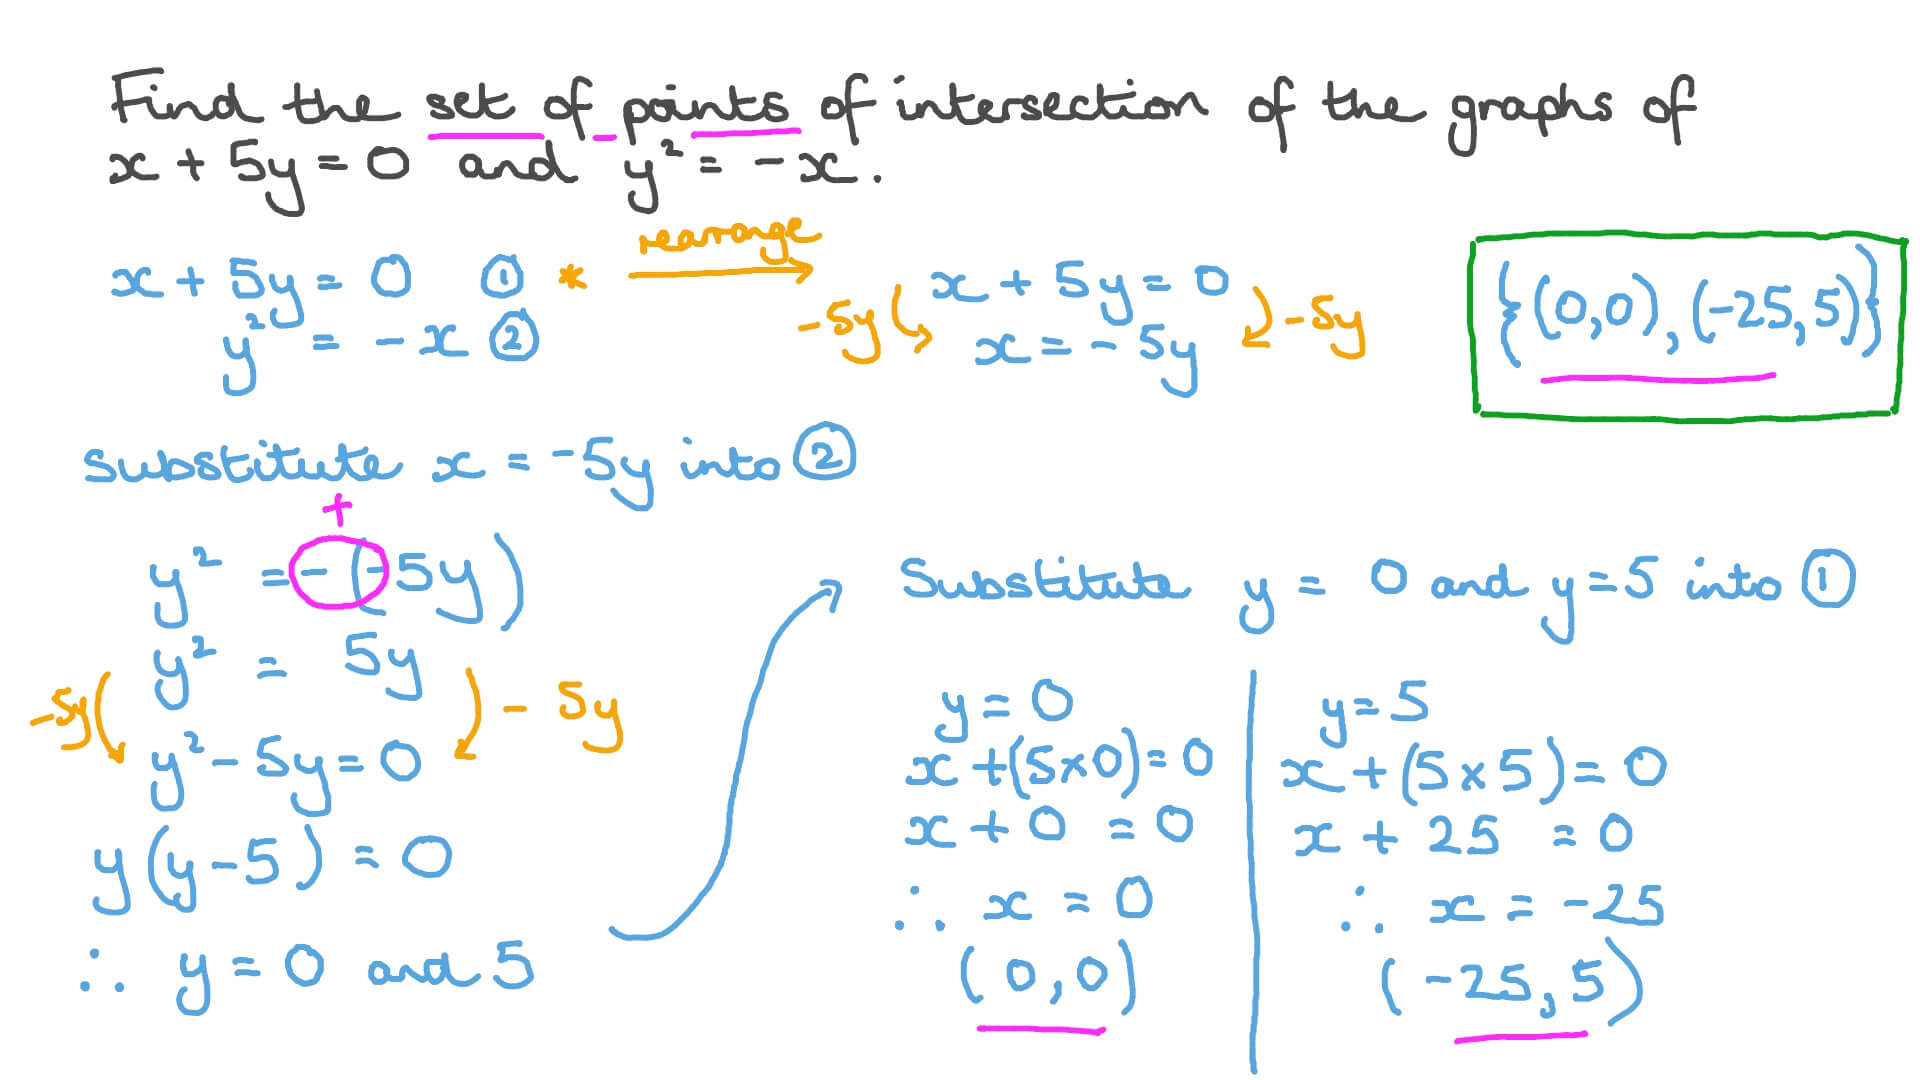 Find the set of points of intersection of the graphs of
x + 5y = 0 and y² = -x.
x + 5y = 0 ① *
y² = -x ②
rearrange
x + 5y = 0
-5y -5y
x = -5y
{(0,0), (-25,5)}
substitute x = -5y into ②
+
y² = -(-5y)
y² = 5y
-5y - 5y
y² - 5y = 0
y(y-5) = 0
∴ y = 0 and 5
Substitute y = 0 and y = 5 into ①
y = 0
x + (5×0) = 0
x + 0 = 0
∴ x = 0
(0,0)
y = 5
x + (5×5) = 0
x + 25 = 0
∴ x = -25
(-25,5)